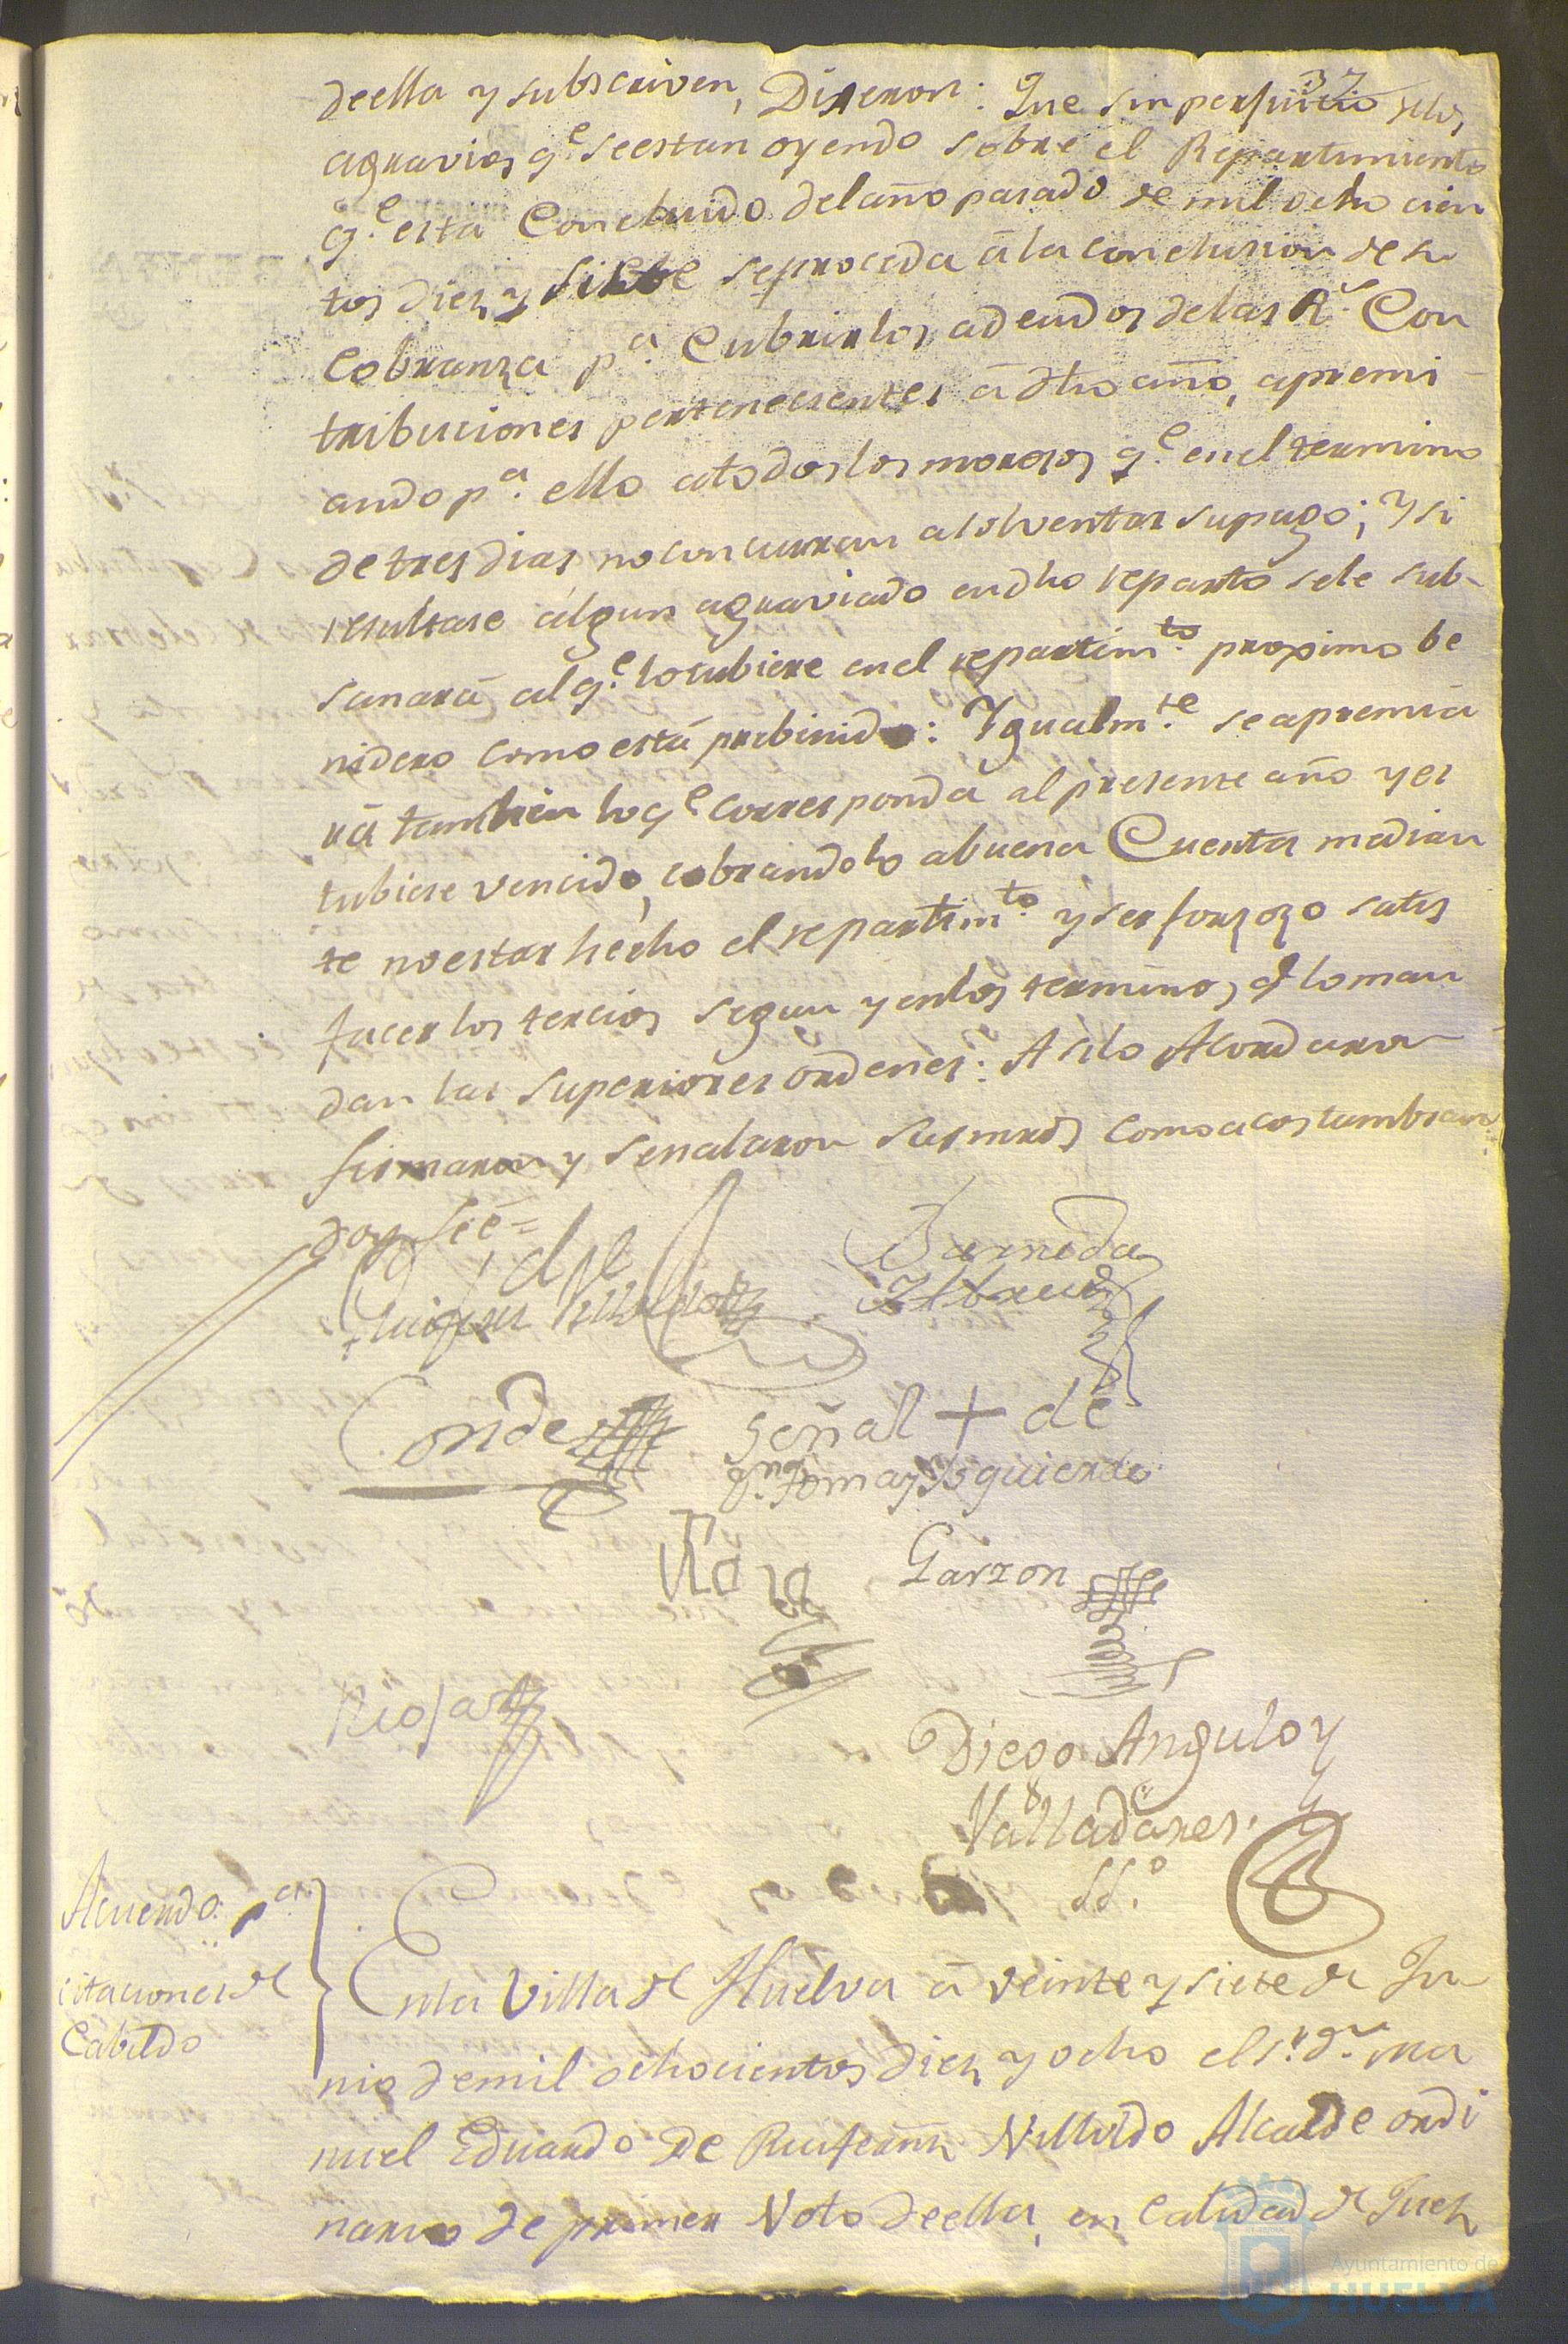 37
deella y subscriven, Dixeron: Que sin perjuicio delos
agravios q.e seestan oyendo sobre el Repartimiento
q.e esta Concluido del año pasado de mil ocho cien
tos diez y siete seproceda á la conclusion de su
Cobranza p.a Cubrir los adeudos de las R.s Con
tribuciones pertenecientes á dho año, apremi
ando p.a ello atodos los morosos q.e en el termino
de tres dias no concurran a solventar su pago; Y si
resultase algun agraviado en dho reparto sele sub-
sanará al q.e lo tubiere en el repartim.to proximo be
nidero como está prebinido: Ygualm.te se apremia
rá tambien lo q.e corresponda al presente año y es
tubiere vencido, cobrandolo a buena Cuenta median
te no estar hecho el repartim.to y ser forzozo satis
facer los tercios segun y en los terminos q.e lo man
dan las superiores ordenes: Asi lo Acordaron
firmaron y señalaron sus mrds como acostumbran
doy feé=
Barreda
Conde
señal + de
Tomas Ysquierdo
Garzon
Diego Angulo y
Valladares.
SS.o
Acuerdo p.a
citaciones de
Cabildo
Enla Villa de Huelva á veinte y siete de Ju
nio de mil ochocientos diez y ocho el s.r d.n Ma
nuel Eduardo de Ruifernz Villoldo Alcalde ordi
nario de primer Voto deella, en calidad de Juez
Ayuntamiento de
HUELVA